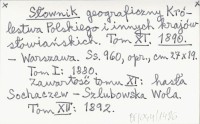 Słownik geograficzny Kró-
lestwa Polskiego i innych krajów
słowiańskich. Tom XI. 1890.
– Warszawa. Ss. 960, opr., cm 27x19.
Tom I: 1880.
Zawartość tomu XI: hasła
Sochaczew – Szlubowska Wola.
Tom XII: 1892.